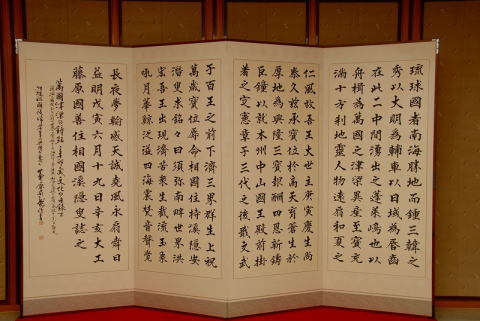 琉球國者南海勝地而鍾三韓之
秀以大明為輔車以日域為脣齒
在此二中間湧出之蓬萊嶋也以
舟楫為萬國之津梁異産至寶充
滿十方利地靈人物遠扇和夏之
仁風故吾王大世主庚寅慶生尚
泰久茲承寶位於高天育蒼生於
厚地為興隆三寶報酬四恩新鑄
巨鐘以就本州中山國王殿前掛
著之定憲章于三代之後戢文武
于百王之前下濟三界群生上祝
萬歲寶位辱命相國住持溪隱安
潛叟求銘々曰須弥南畔世界洪
宏吾王出現濟苦衆生截流玉象
吼月華鯨泛溢四海震梵音聲覺
長夜夢輸感天誠堯風永扇舜日
益明戊寅六月十九日辛亥大工
藤原國善住相國溪隱叟誌之
萬國津梁